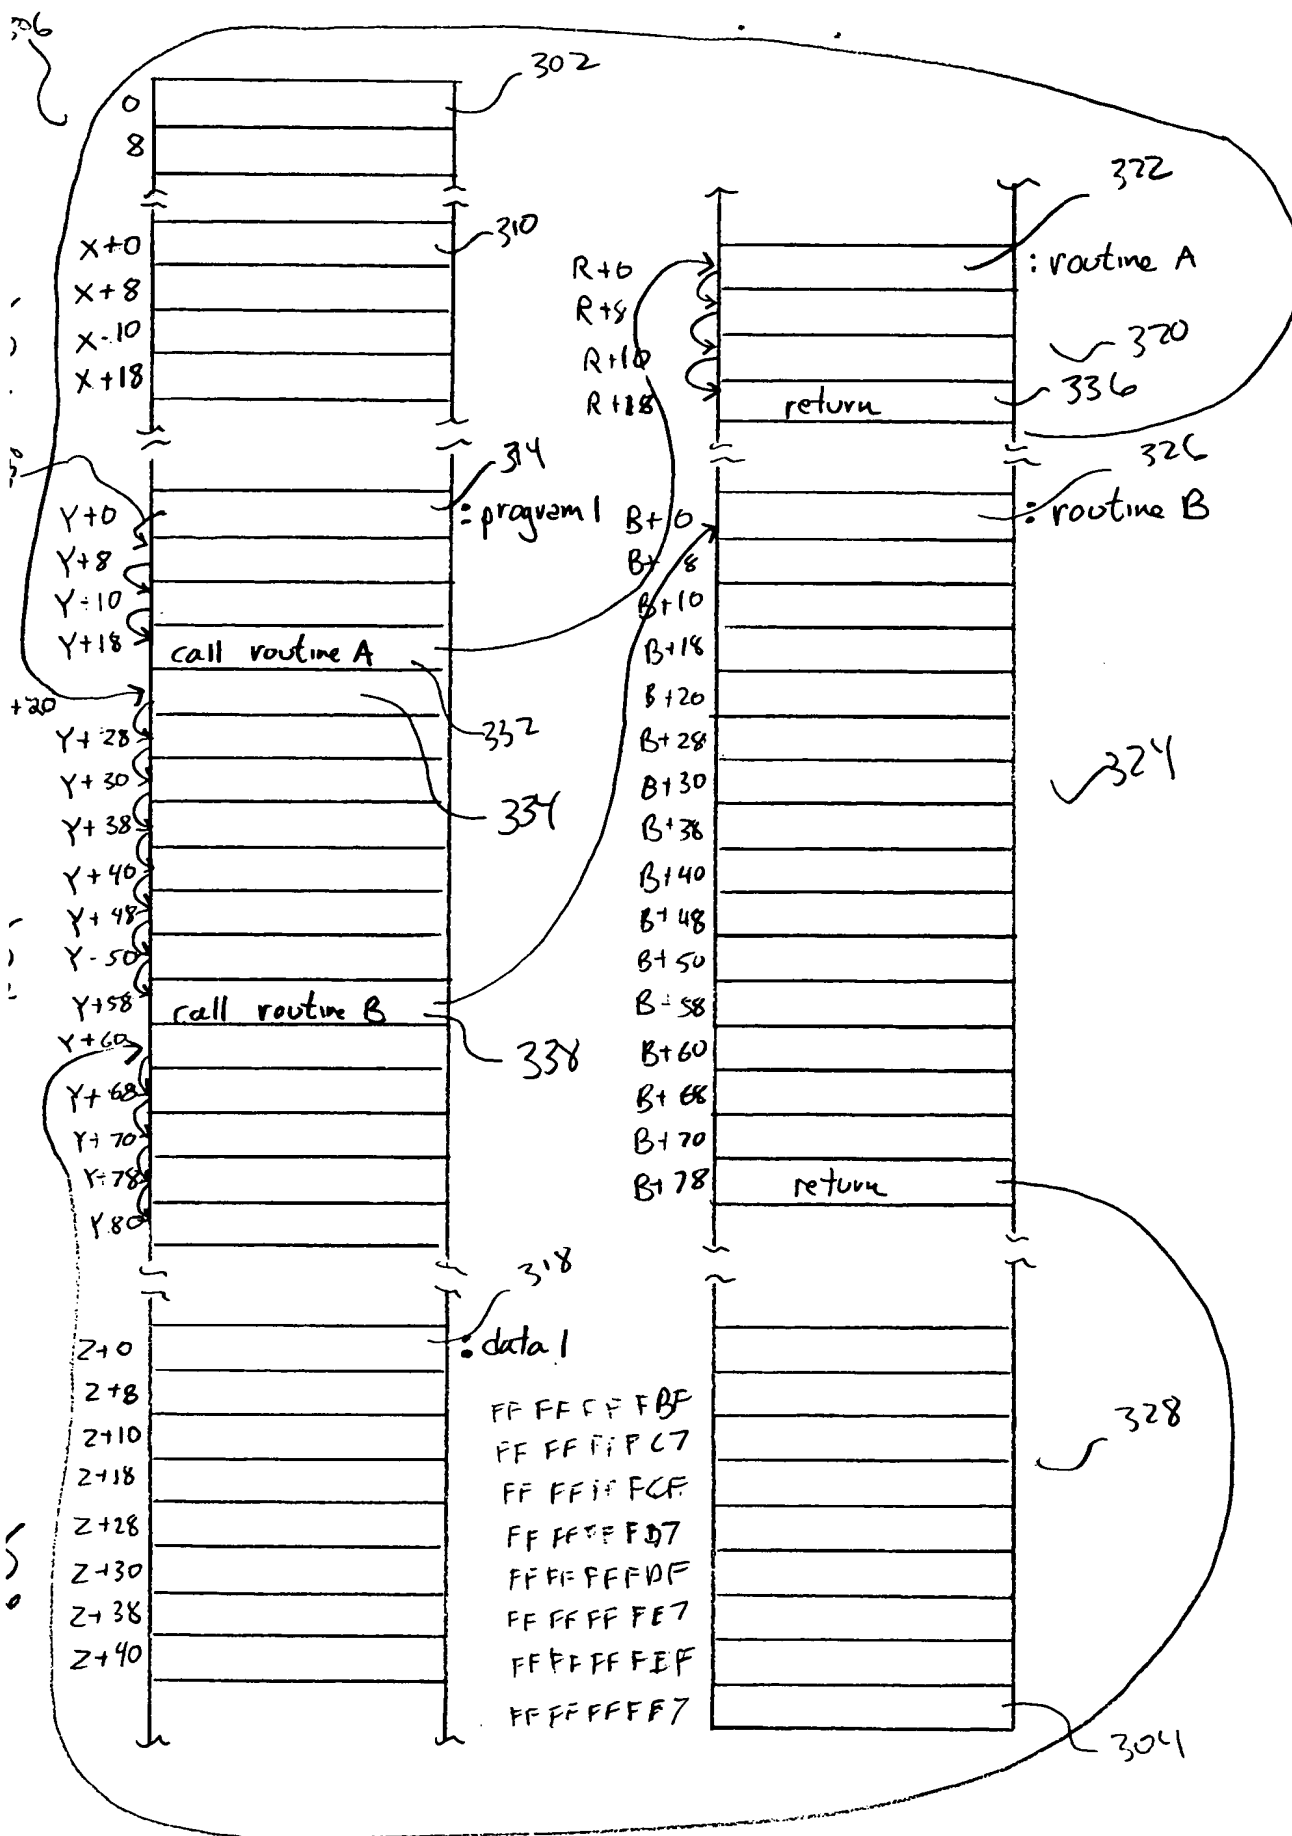 306
302
0
8
310
X+0
X+8
X-10
X+18
314
Y+0
: program 1
Y+8
Y-10
Y+18
call routine A
+20
332
Y+28
Y+30
334
Y+38
Y+40
Y+48
Y-50
Y+58
call routine B
Y+60
338
Y+68
Y+70
Y-78
Y-80
318
Z+0
: data 1
Z+8
Z+10
Z+18
Z+28
Z+30
Z+38
Z+40
322
R+0
: routine A
R+8
320
R+10
336
R+18
return
326
B+0
: routine B
B+8
B+10
B+18
B+20
B+28
324
B+30
B+38
B+40
B+48
B+50
B-58
B+60
B+68
B+70
B+78
return
FF FF FF FBF
FF FF FF FC7
328
FF FF FF FCF
FF FF FF FD7
FF FF FF FDF
FF FF FF FE7
FF FF FF FEF
FF FF FF FF7
304